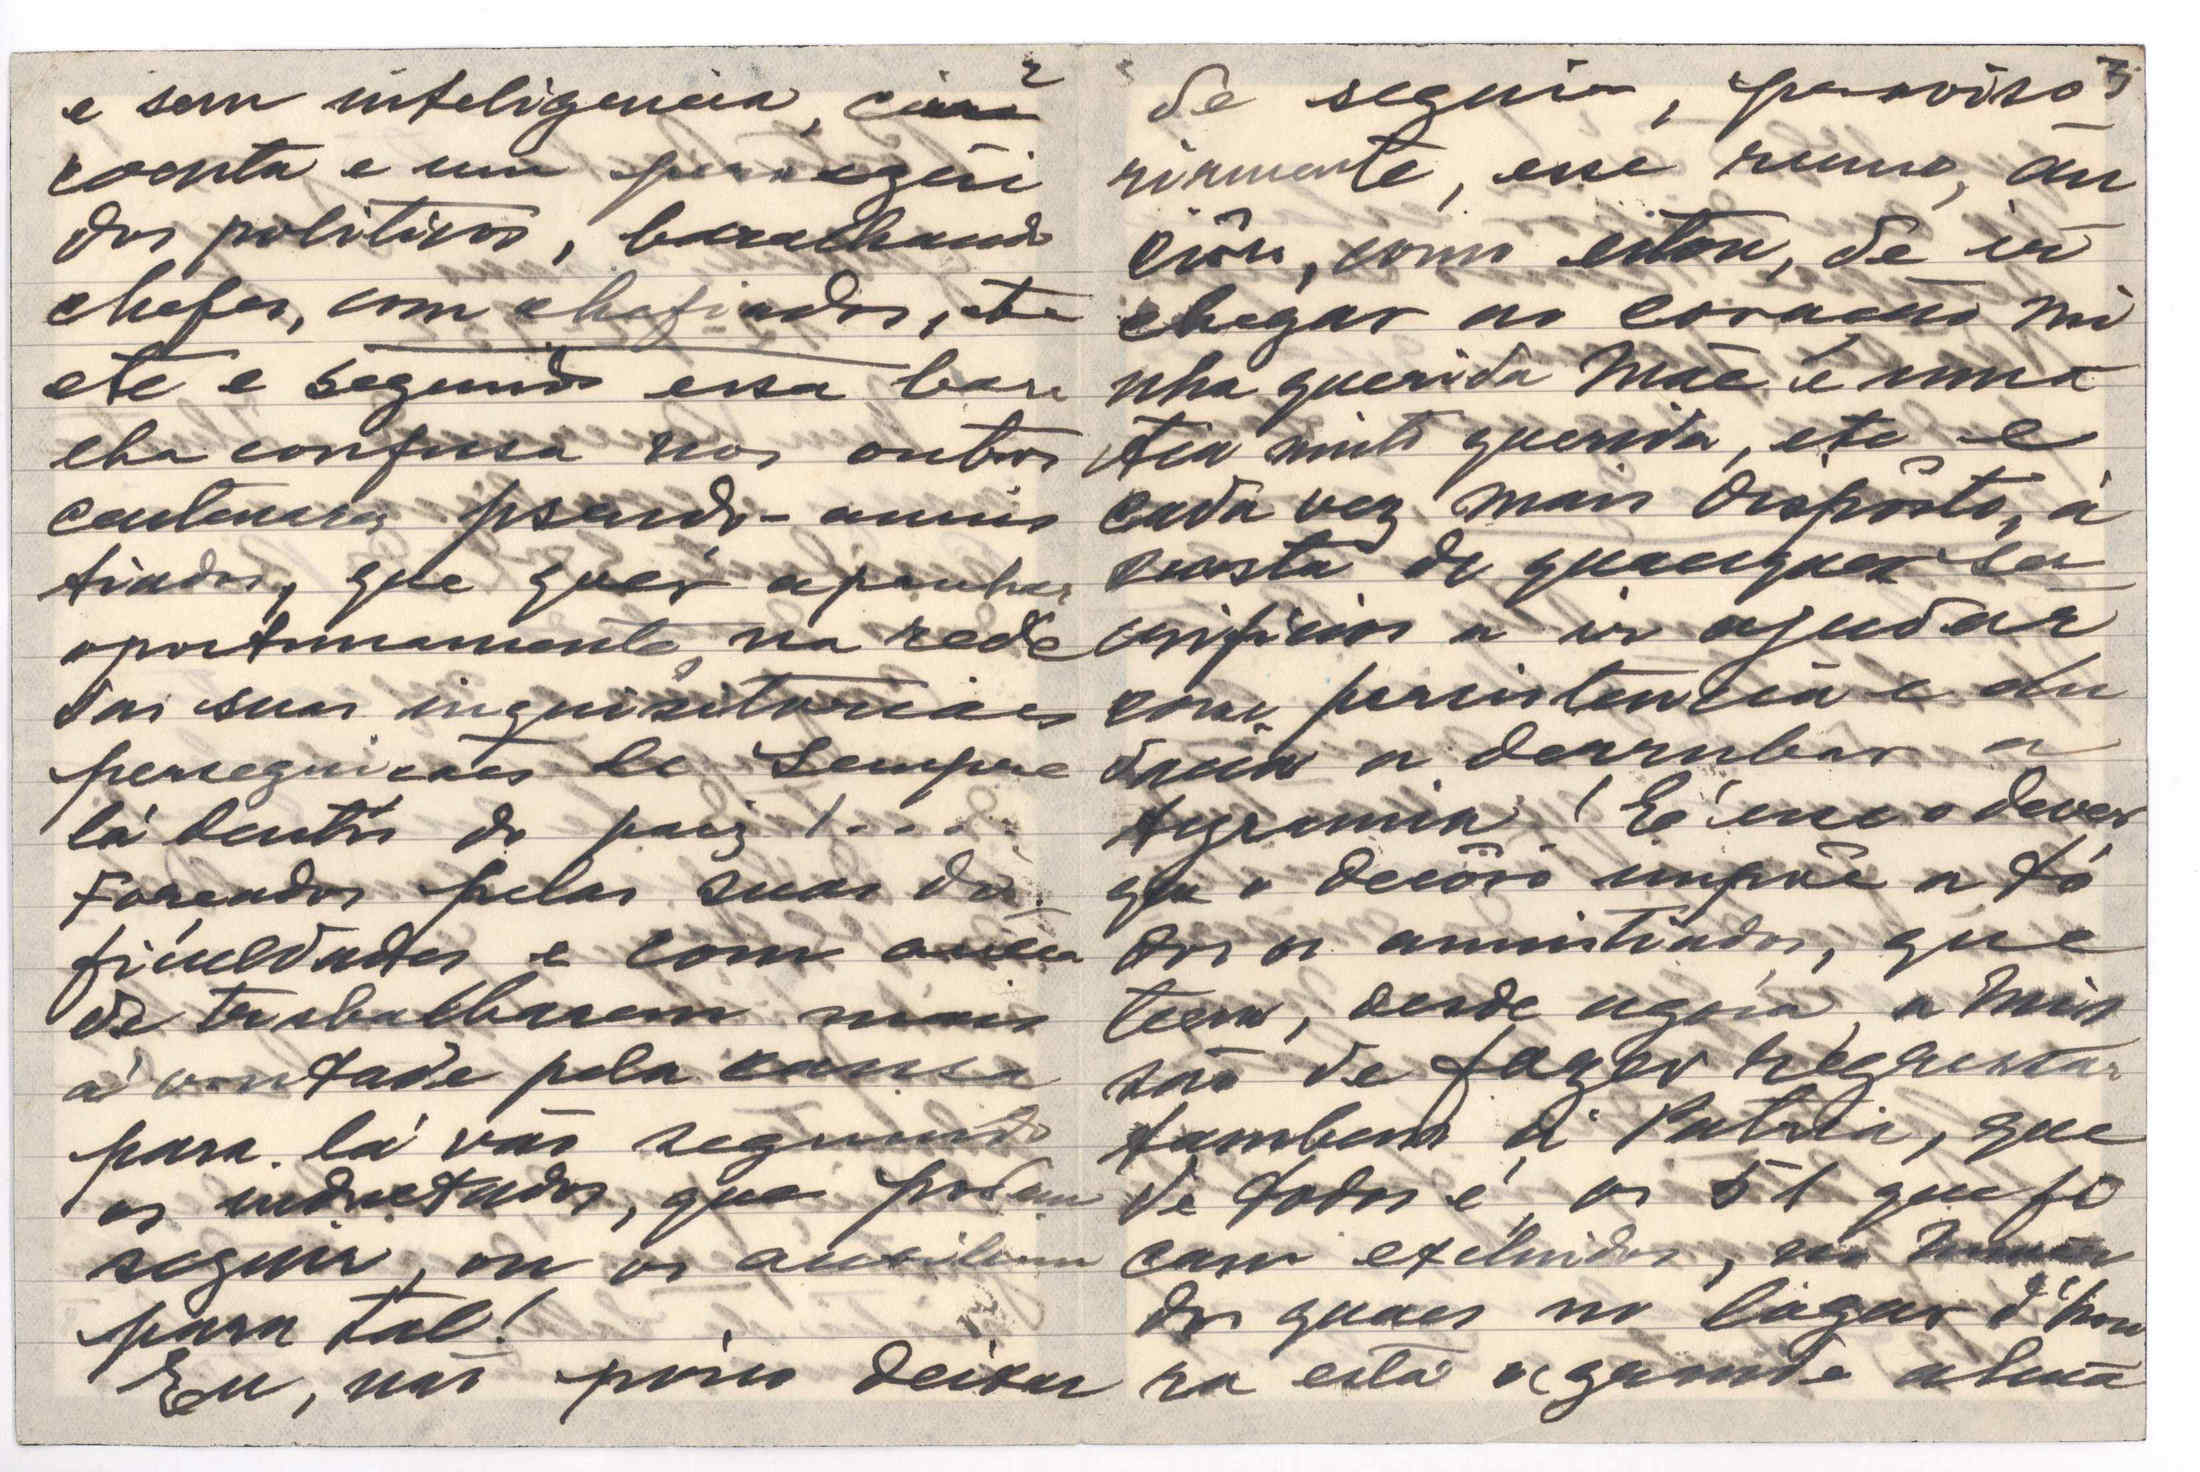 2
e sem inteligencia, cin
coenta e um perseguí
dos politicos, baralhando
chefes, com chefiados, etc
etc e segundo essa bara
lha confusa nos outros
centenares pseudo-amnis
tiados, que quer apanhar
oportunamente, na rede
das suas inquisitoriaes
perseguições de sempre
lá dentro do paiz!....
Forçados pelas suas di-
ficuldades e com
de trabalharem mais
á vontade pela causa
para lá vão seguindo
os indultados, que podem
seguir, ou os auxiliem
para tal!
Eu, não pósso deixar
3
de seguir, proviso
riamente, esse rumo, an
cioso, como estou, de ir
chegar ao coração mi
nha querida Mãe e uma
tia muito querida, etc e
cada vez mais disposto, á
custa de quaesquer sa
crificios a ir ajudar
com persistencia e au
dacia a derrubar a
tyrannia! É esse o dever
que o decôro impõe a tó
dos os amnistiados, que
teem, desde agora, a mis
são de fazer regressar
tambem á Patria, que
de todos é, os 51 que fi
cam excluidos, no numero
dos quaes no lugar d'hon
ra está a grande alma